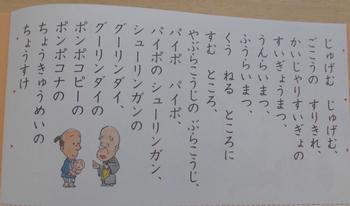 じゅげむ じゅげむ、
ごこうの すりきれ、
かいじゃりすいぎょの
すいぎょうまつ、
うんらいまつ、
ふうらいまつ、
くう ねる ところに
すむ ところ、
やぶらこうじの ぶらこうじ、
パイポ パイポ、
パイポの シューリンガン、
シューリンガンの
グーリンダイ、
グーリンダイの
ポンポコピーの
ポンポコナの
ちょうきゅうめいの
ちょうすけ